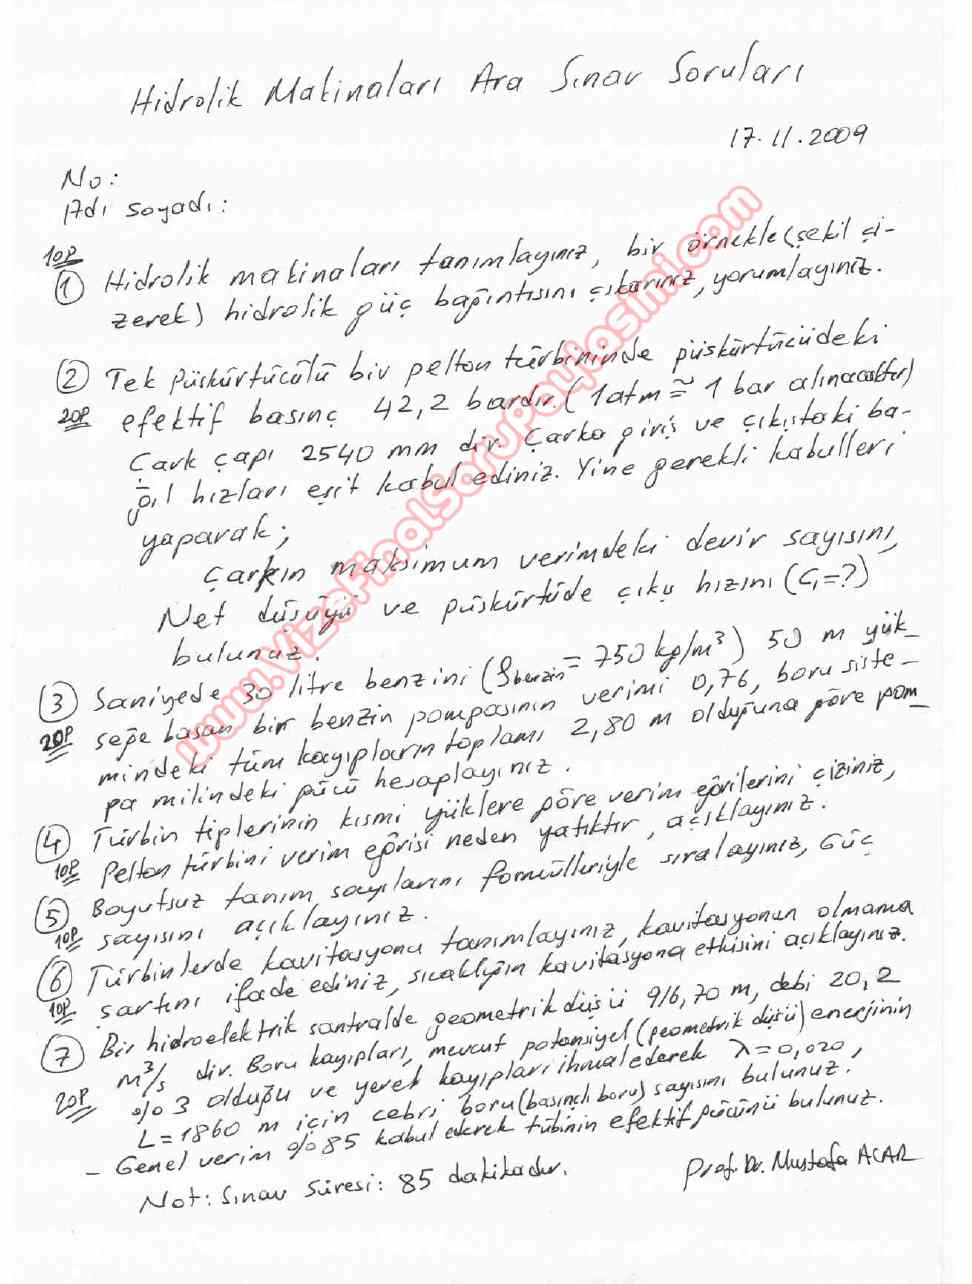 Hidrolik Makinaları Ara Sınav Soruları
17.11.2009
No:
Adı soyadı:
10P
1 Hidrolik makinaları tanımlayınız, bir örnekle (şekil çi-
zerek) hidrolik güç bağıntısını çıkarınız, yorumlayınız.
2 Tek püskürtücülü bir pelton türbininde püskürtücüdeki
20P efektif basınç 42,2 bardır (1atm ≅ 1 bar alınacaktır)
Çark çapı 2540 mm dir. Çarka giriş ve çıkıştaki ba-
ğıl hızları eşit kabul ediniz. Yine gerekli kabulleri
yaparak;
Çarkın maksimum verimdeki devir sayısını,
Net düşüyü ve püskürtüde çıkış hızını (C1=?)
bulunuz.
3 Saniyede 30 litre benzini (ρbenzin = 750 kg/m³) 50 m yük-
20P seğe basan bir benzin pompasının verimi 0,76, boru siste-
mindeki tüm kayıpların toplamı 2,80 m olduğuna göre pom-
pa milindeki gücü hesaplayınız.
4 Türbin tiplerinin kısmi yüklere göre verim eğrilerini çiziniz,
10P Pelton türbini verim eğrisi neden yatıktır, açıklayınız.
5 Boyutsuz tanım sayılarını formülleriyle sıralayınız, Güç
10P sayısını açıklayınız.
6 Türbinlerde kavitasyonu tanımlayınız, kavitasyonun olmama
10P şartını ifade ediniz, sıcaklığın kavitasyona etkisini açıklayınız.
7 Bir hidroelektrik santralde geometrik düşü 916,70 m, debi 20,2
m³/s dir. Boru kayıpları, mevcut potansiyel (geometrik düşü) enerjinin
20P %3 olduğu ve yerel kayıpları ihmal ederek λ=0,020,
L=1860 m için cebri boru (basınçlı boru) sayısını bulunuz.
- Genel verim %85 kabul ederek tübinin efektif gücünü bulunuz.
Not: Sınav süresi: 85 dakikadır.
Prof. Dr. Mustafa ACAR
www.VizefinalSorupaylasimi.com